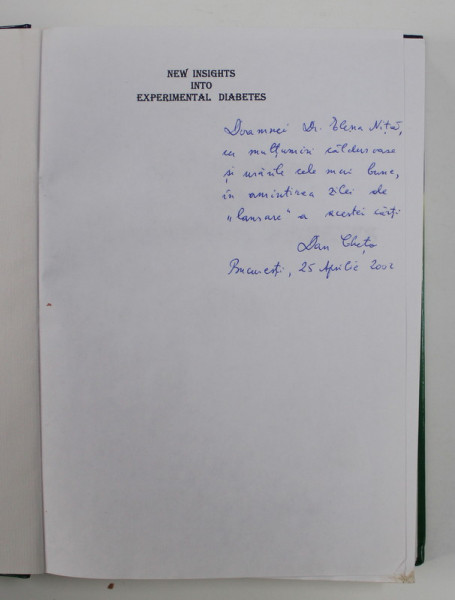 NEW INSIGHTS
INTO
EXPERIMENTAL DIABETES
Doamnei Dr. Elena Niță,
cu mulțumiri călduroase
și urările cele mai bune,
în amintirea zilei de
„lansare" a acestei cărți
Dan Cheța
București, 25 Aprilie 2002